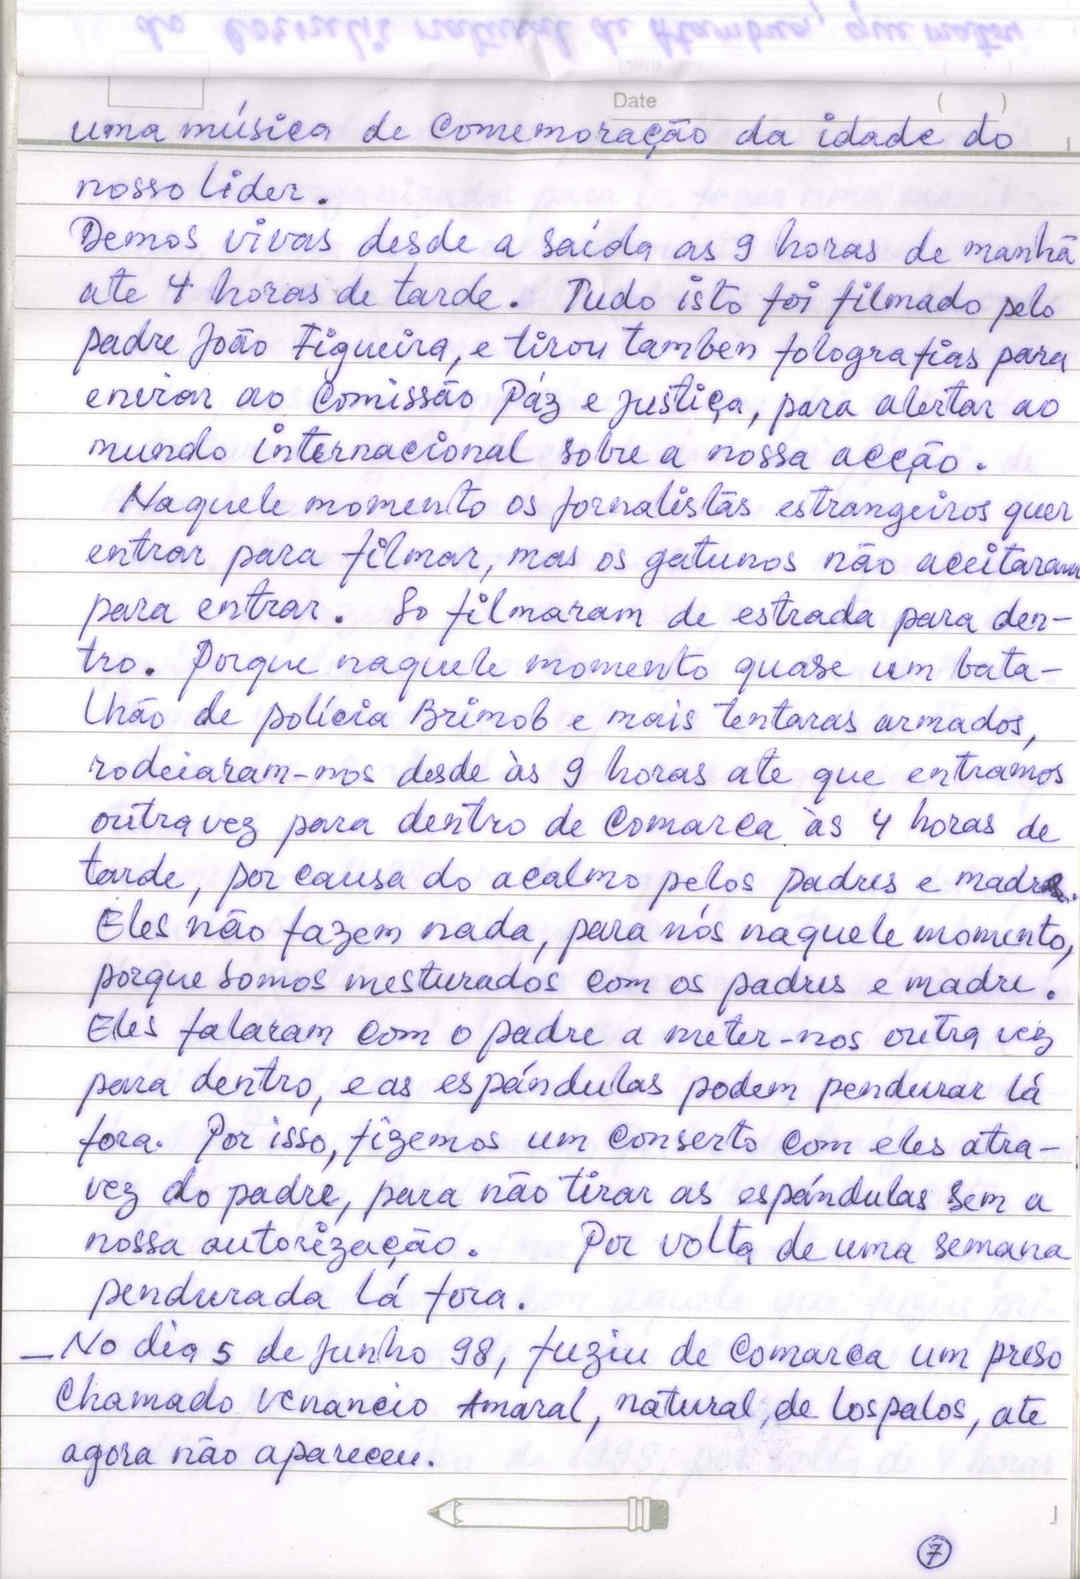 Date ( )
uma música de comemoração da idade do
nosso líder.
Demos vivas desde a saída as 9 horas de manhã
ate 4 horas de tarde. Tudo isto foi filmado pelo
padre João Figueira, e tirou tamben fotografias para
enviar ao Comissão Páz e Justiça, para alertar ao
mundo internacional sobre a nossa acção.
Naquele momento os jornalistas estrangeiros quer
entrar para filmar, mas os gatunos não aceitaram
para entrar. So filmaram de estrada para den-
tro. Porque naquele momento quase um bata-
lhão de polícia Brimob e mais tentaras armados,
rodeiaram-nos desde às 9 horas ate que entramos
outra vez para dentro de Comarca às 4 horas de
tarde, por causa do acalmo pelos padres e madre.
Eles não fazem nada, para nós naquele momento,
porque somos mesturados com os padres e madre.
Eles falaram com o padre a meter-nos outra vez
para dentro, e as espándulas podem pendurar lá
fora. Por isso, fizemos um conserto com eles atra-
vez do padre, para não tirar as espándulas sem a
nossa autorização. Por volta de uma semana
pendurada lá fora.
_ No dia 5 de Junho 98, fuziu de Comarca um preso
chamado Venancio Amaral, natural de Lospalos, ate
agora não apareceu.
7